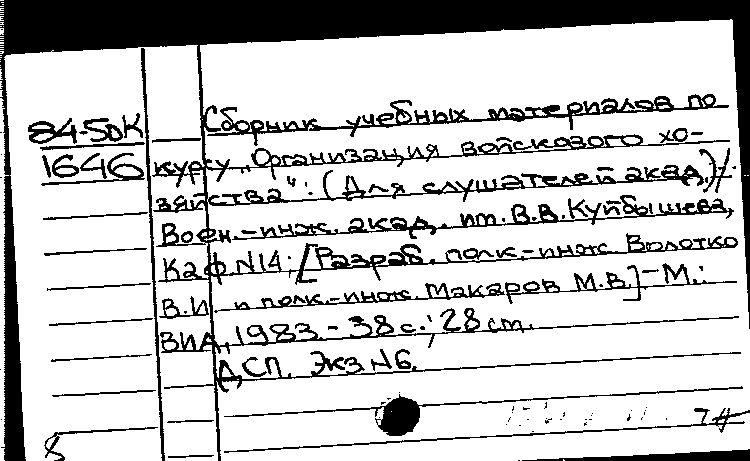 84-5DK
1646
Сборник учебных материалов по
курсу „Организация войскового хо-
зяйства“: (Для слушателей акад.)/
Воен.-инж. акад. им. В.В. Куйбышева,
Каф. N14; [Разраб. полк.-инж. Волотко
В.И. и полк.-инж. Макаров М.В.]-М.:
ВИА, 1983.- 38 с.; 28 cm.
ДСП. Экз N6.
8